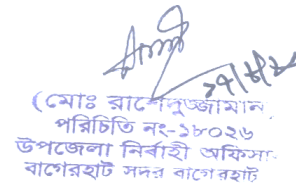 (মোঃ রাশেদুজ্জামান
পরিচিতি নং-১৮০২৬
উপজেলা নির্বাহী অফিসা
বাগেরহাট সদর বাগেরহাট